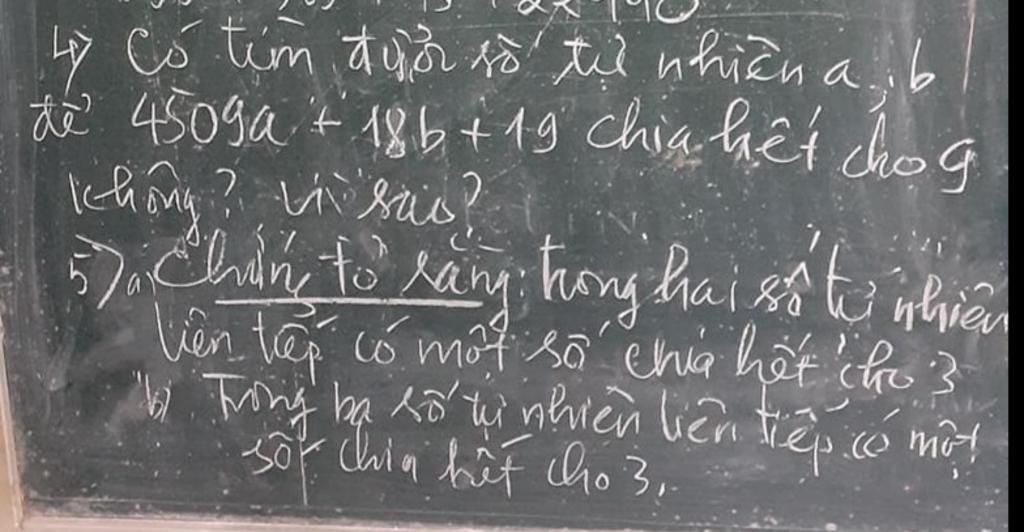 4) Có tìm được số tự nhiên a, b
để 4509a + 18b + 19 chia hết cho 9
không? Vì sao?
5) a, Chứng tỏ rằng: trong hai số tự nhiên
liên tiếp có một số chia hết cho 3
b) Trong ba số tự nhiên liên tiếp có một
số chia hết cho 3.